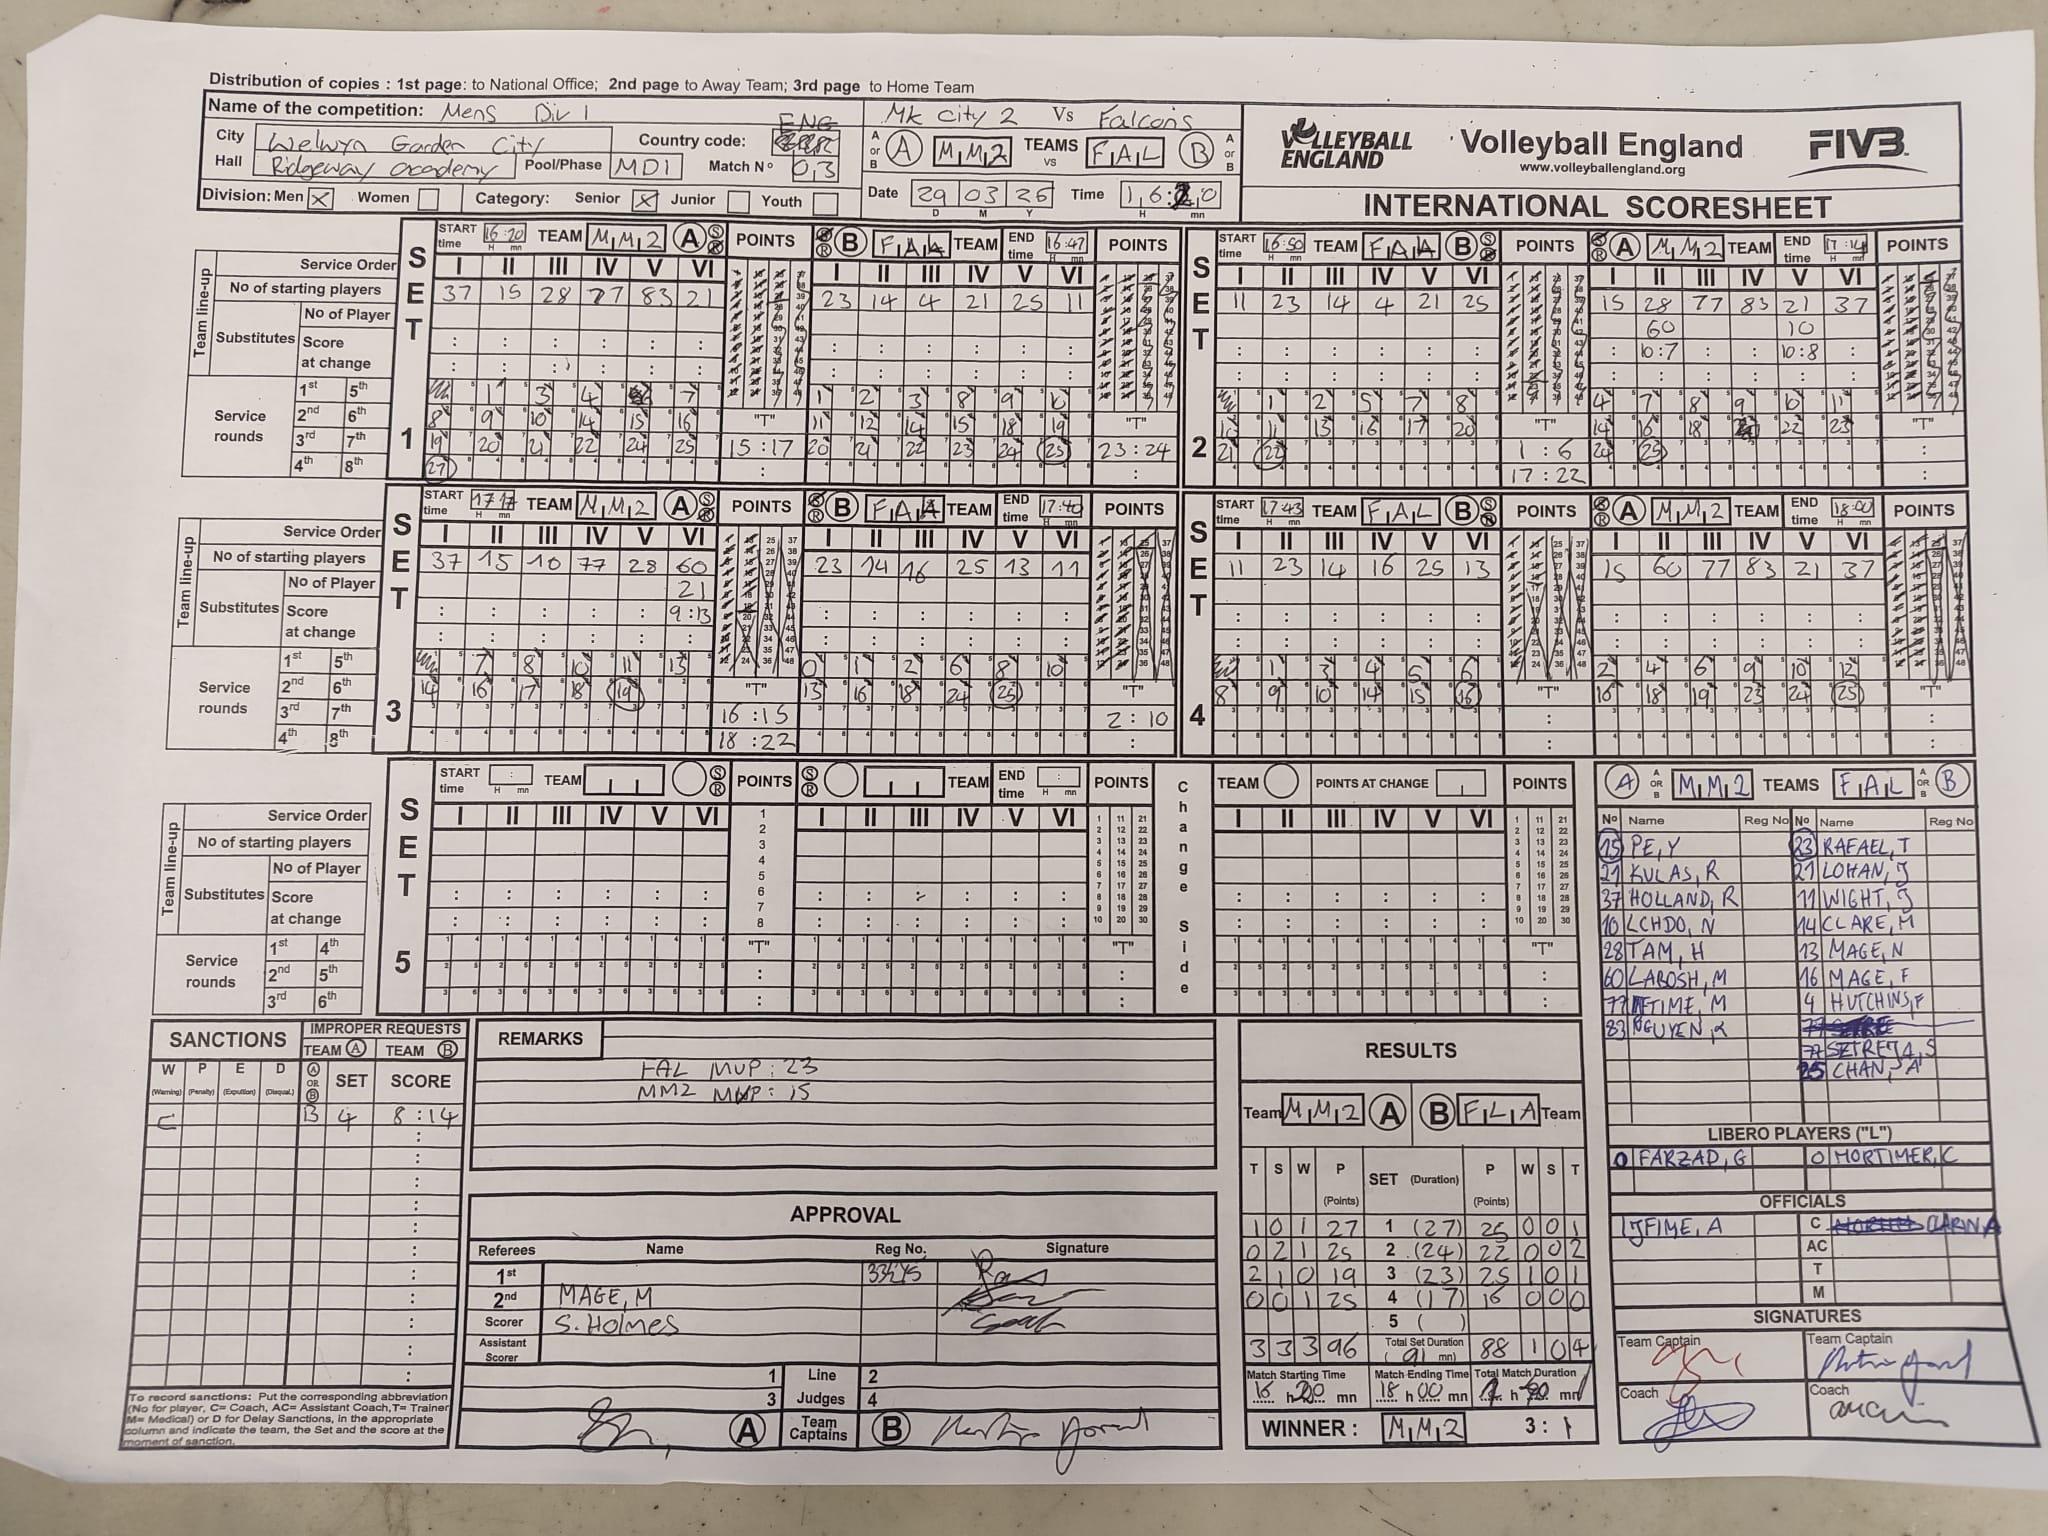 Distribution of copies : 1st page: to National Office; 2nd page to Away Team; 3rd page to Home Team
Name of the competition: Mens Div 1
MK City 2 Vs Falcons
City Welwyn Garden City Country code: ENG
Hall Ridgeway academy Pool/Phase MD1 Match Nº 0,3
A or B A M,M,2 TEAMS vs F,A,L B A or B
Division: Men X Women Category: Senior X Junior Youth
Date 29 03 26 Time
D M Y H mn
VOLLEYBALL ENGLAND Volleyball England FIVB
www.volleyballengland.org
INTERNATIONAL SCORESHEET
SET 1
START time 16:20 TEAM M,M,2 A S R POINTS S R B TEAM END time 16:47 POINTS
Service Order I II III IV V VI I II III IV V VI
Team line-up
No of starting players 37 15 28 77 83 21 23 14 4 21 25 11
Substitutes No of Player
Score at change
Service rounds
1st 5th 1 3 4 7 1 2 3 8 9 10
2nd 6th 8 9 10 14 15 16 11 12 14 15 18 19
3rd 7th 19 20 21 22 24 25 20 21 22 23 24 25
4th 8th 27
"T" 15:17 "T" 23:24
SET 2
START time 16:50 TEAM B S R POINTS S R A M,M,2 TEAM END time 17:14 POINTS
I II III IV V VI I II III IV V VI
11 23 14 4 21 25 15 28 77 83 21 37
60 10
10:7 10:8
1 2 5 7 8 4 7 8 9 10 11
10 11 13 16 17 20 14 16 18 22 23
21 22 24 25
"T" 1:6 17:22 "T"
SET 3
START time 17 17 TEAM M,M,2 A S R POINTS S R B TEAM END time 17:40 POINTS
Service Order I II III IV V VI I II III IV V VI
Team line-up
No of starting players 37 15 10 77 28 60 23 14 16 25 13 11
Substitutes No of Player 21
Score at change 9:13
Service rounds
1st 5th 7 8 10 11 13 0 1 2 6 8 10
2nd 6th 14 16 17 18 19 13 16 18 24 25
3rd 7th
4th 8th
"T" 16:15 18:22 "T" 2:10
SET 4
START time 17:43 TEAM F,A,L B S R POINTS S R A M,M,2 TEAM END time 18:00 POINTS
I II III IV V VI I II III IV V VI
11 23 14 16 25 13 15 60 77 83 21 37
1 3 4 5 6 2 4 6 9 10 12
8 9 10 14 15 16 16 18 19 23 24 25
"T" "T"
SET 5
START time TEAM S R POINTS S R TEAM END time POINTS
Change Side
TEAM POINTS AT CHANGE POINTS
Service Order I II III IV V VI I II III IV V VI I II III IV V VI
Team line-up
No of starting players
Substitutes No of Player
Score at change
Service rounds
1st 4th
2nd 5th
3rd 6th
"T" "T" "T"
A A OR B M,M,2 TEAMS F,A,L A OR B B
Nº Name Reg No Nº Name Reg No
15 PE,Y 23 RAFAEL,T
21 KULAS,R 21 LOHAN,J
37 HOLLAND,R 11 WIGHT,J
10 LCHDO,N 14 CLARE,M
28 TAM,H 13 MAGE,N
60 LABOSH,M 16 MAGE,F
77 4 HUTCHINS,F
83 NGUYEN,R
25 CHAN,A
LIBERO PLAYERS ("L")
0 FARZAD,G 0 MORTIMER,C
OFFICIALS
C
AC
T
M
SIGNATURES
Team Captain Team Captain
Coach Coach
SANCTIONS IMPROPER REQUESTS
TEAM A TEAM B
W (Warning) P (Penalty) E (Expultion) D (Disqual.) A OR B SET SCORE
C B 4 8:14
To record sanctions: Put the corresponding abbreviation
(No for player, C= Coach, AC= Assistant Coach,T= Trainer
M= Medical) or D for Delay Sanctions, in the appropriate
column and indicate the team, the Set and the score at the
moment of sanction.
REMARKS
FAL MVP: 23
MM2 MVP: 15
APPROVAL
Referees Name Reg No. Signature
1st
2nd MAGE, M
Scorer S. Holmes
Assistant Scorer
1 Line 2
3 Judges 4
A Team Captains B
RESULTS
Team M,M,2 A B F,L,A Team
T S W P (Points) SET (Duration) P (Points) W S T
1 0 1 27 1 (27) 25 0 0 1
0 2 1 25 2 (24) 22 0 0 2
2 1 0 19 3 (23) 25 1 0 1
0 0 1 25 4 (17) 16 0 0 0
5 ( )
3 3 3 96 Total Set Duration (91 mn) 88 1 0 4
Match Starting Time Match Ending Time Total Match Duration
16 h 20 mn 18 h 00 mn
WINNER : M,M,2 3:1